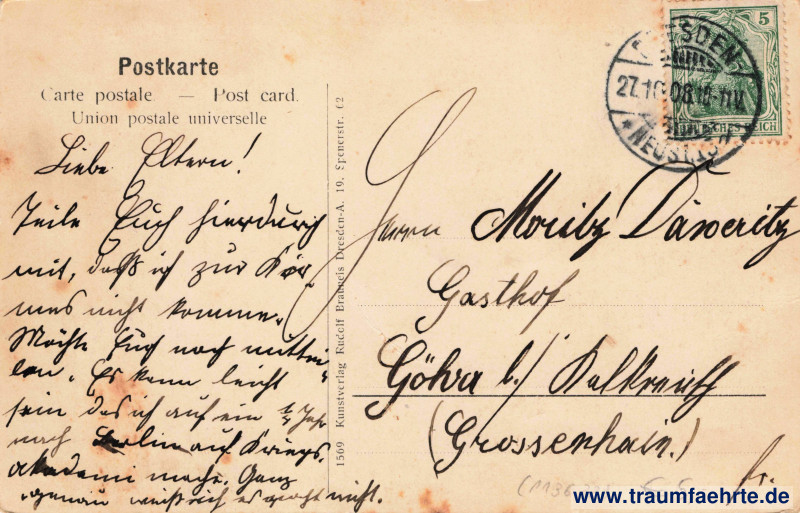 Postkarte
Carte postale — Post card.
Union postale universelle
Liebe Eltern!
Teile Euch hierdurch
mit, daß ich zur Kir-
mes nicht komme.
Möchte Euch noch mittei-
len. Es kann leicht
sein das ich auf ein 1/4 Jahr
nach Berlin auf Kriegs-
akademi mache. Ganz
genau weiß ich es noch nicht.
1569 Kunstverlag Rudolf Brauneis Dresden-A. 19, Spenerstr. 62
5
DEUTSCHES REICH
DRESDEN
27.10.08.10-11V.
*NEUST.
Herrn Moritz Däweritz
Gasthof
Göhra b./ Kalkreuth
(Grossenhain.)
www.traumfaehrte.de